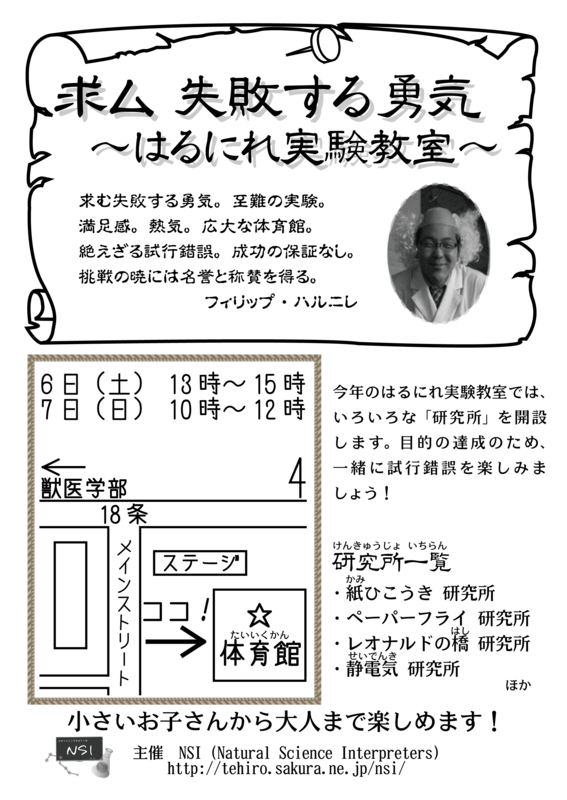 求ム 失敗する勇気
～はるにれ実験教室～
求む失敗する勇気。至難の実験。
満足感。熱気。広大な体育館。
絶えざる試行錯誤。成功の保証なし。
挑戦の暁には名誉と称賛を得る。
フィリップ・ハルニレ
6日（土） 13時～15時
7日（日） 10時～12時
←
獣医学部
4
18条
メインストリート
ステージ
ココ！
☆
たいいくかん
体育館
今年のはるにれ実験教室では、
いろいろな「研究所」を開設
します。目的の達成のため、
一緒に試行錯誤を楽しみま
しょう！
けんきゅうじょ いちらん
研究所一覧
かみ
・紙ひこうき 研究所
・ペーパーフライ 研究所
はし
・レオナルドの橋 研究所
せいでんき
・静電気 研究所
ほか
小さいお子さんから大人まで楽しめます！
NSI
主催 NSI (Natural Science Interpreters)
http://tehiro.sakura.ne.jp/nsi/